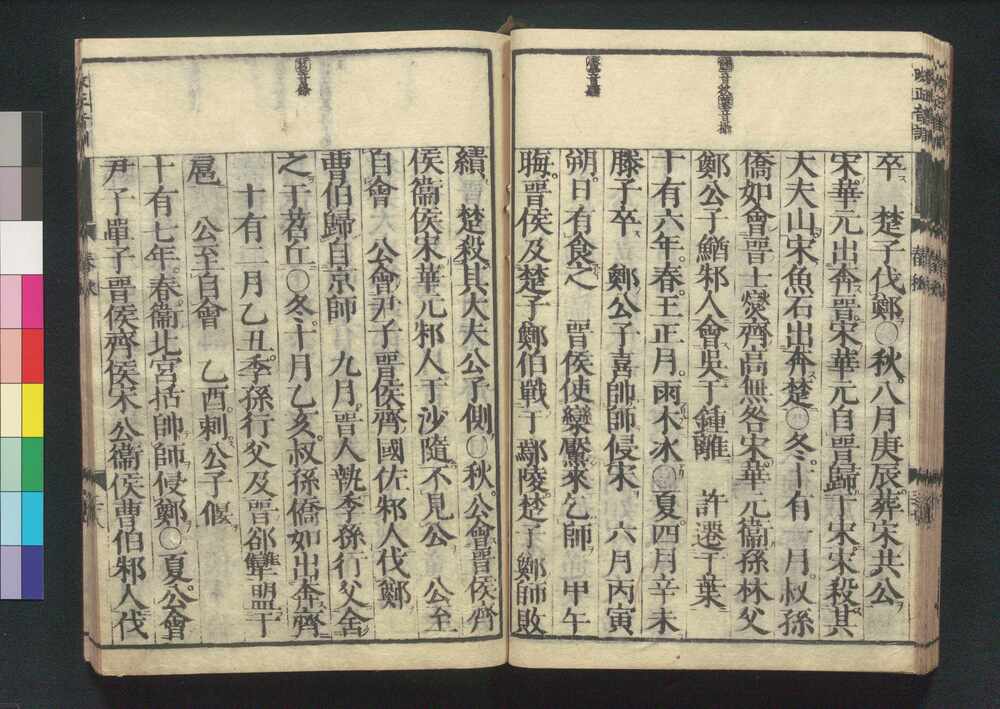 卒 楚子伐鄭○秋八月庚辰葬宋共公
宋華元出奔晋宋華元自晋歸于宋宋殺其
大夫山宋魚石出奔楚○冬十有一月叔孫
僑如會晋士燮齊高無咎宋華元衞孫林父
鄭公子鰌邾人會吳于鍾離 許遷于葉
十有六年春王正月雨木冰○夏四月辛未
滕子卒 鄭公子喜帥師侵宋 六月丙寅
朔日有食之 晋侯使欒黶來乞師 甲午
晦晋侯及楚子鄭伯戰于鄢陵楚子鄭師敗
績 楚殺其大夫公子側○秋公會晋侯齊
侯衞侯宋華元邾人于沙隨不見公 公至
自會 公會尹子晋侯齊國佐邾人伐鄭
曹伯歸自京師 九月晋人執季孫行父舍
之于苕丘○冬十月乙亥叔孫僑如出奔齊
十有二月乙丑季孫行父及晋郤犨盟于
扈 公至自會 乙酉刺公子偃
十有七年春衞北宮括帥師侵鄭○夏公會
尹子單子晋侯齊侯宋公衞侯曹伯邾人伐